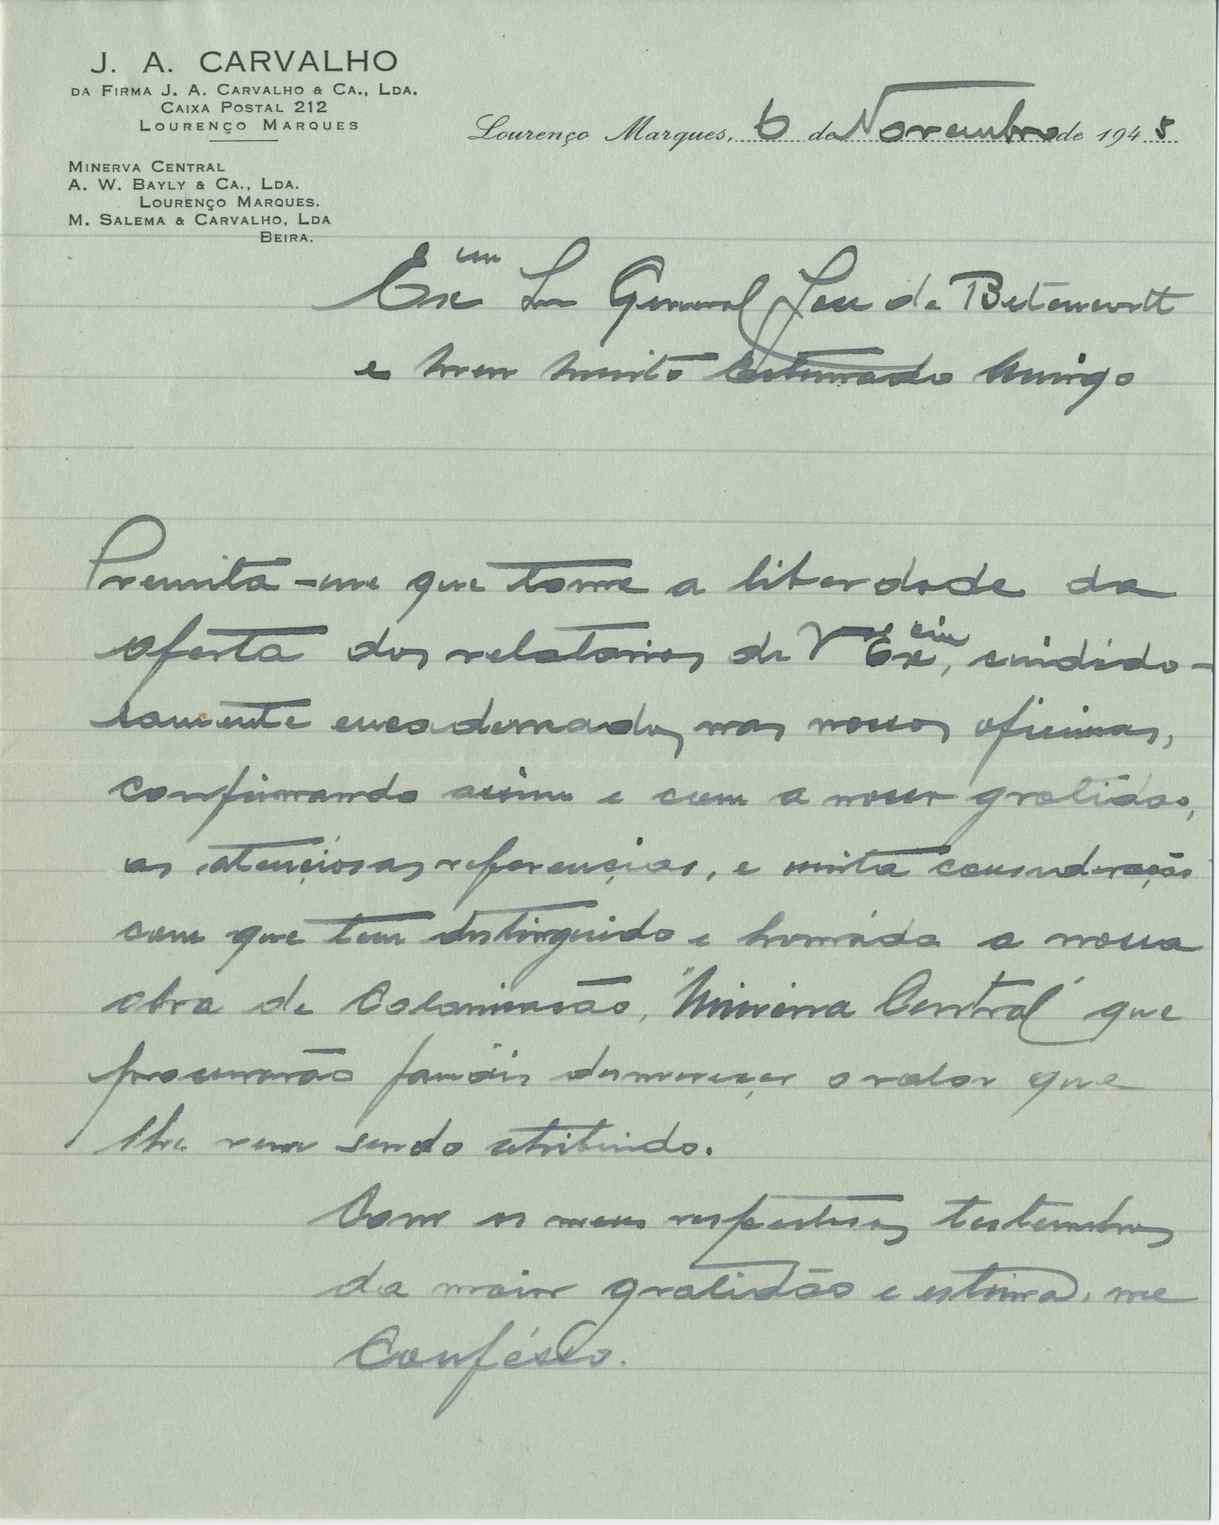 J. A. CARVALHO
DA FIRMA J. A. CARVALHO & CA., LDA.
CAIXA POSTAL 212
LOURENÇO MARQUES
MINERVA CENTRAL
A. W. BAYLY & CA., LDA.
LOURENÇO MARQUES.
M. SALEMA & CARVALHO, LDA
BEIRA.
Lourenço Marques, 6 de Novembro de 1945
Exmo Snr General José de Betencourtt
e meu muito Estimado Amigo
Premita-me que tome a liberdade da
oferta dos relatorios de V Excia, cuidado-
samente encadernados, nas nossas oficinas,
confirmando assim e com a nossa gratidão,
as atenciosas referençias, e muita consideração
com que tem distinguido e honrado a nossa
obra de Colonisação, "Minerva Central" que
procurarão jamáis desmereçer o valor que
lhe vem sendo atribuido.
Com os meus respeitosos testemunhos
da maior gratidão e estima, me
Confésso.